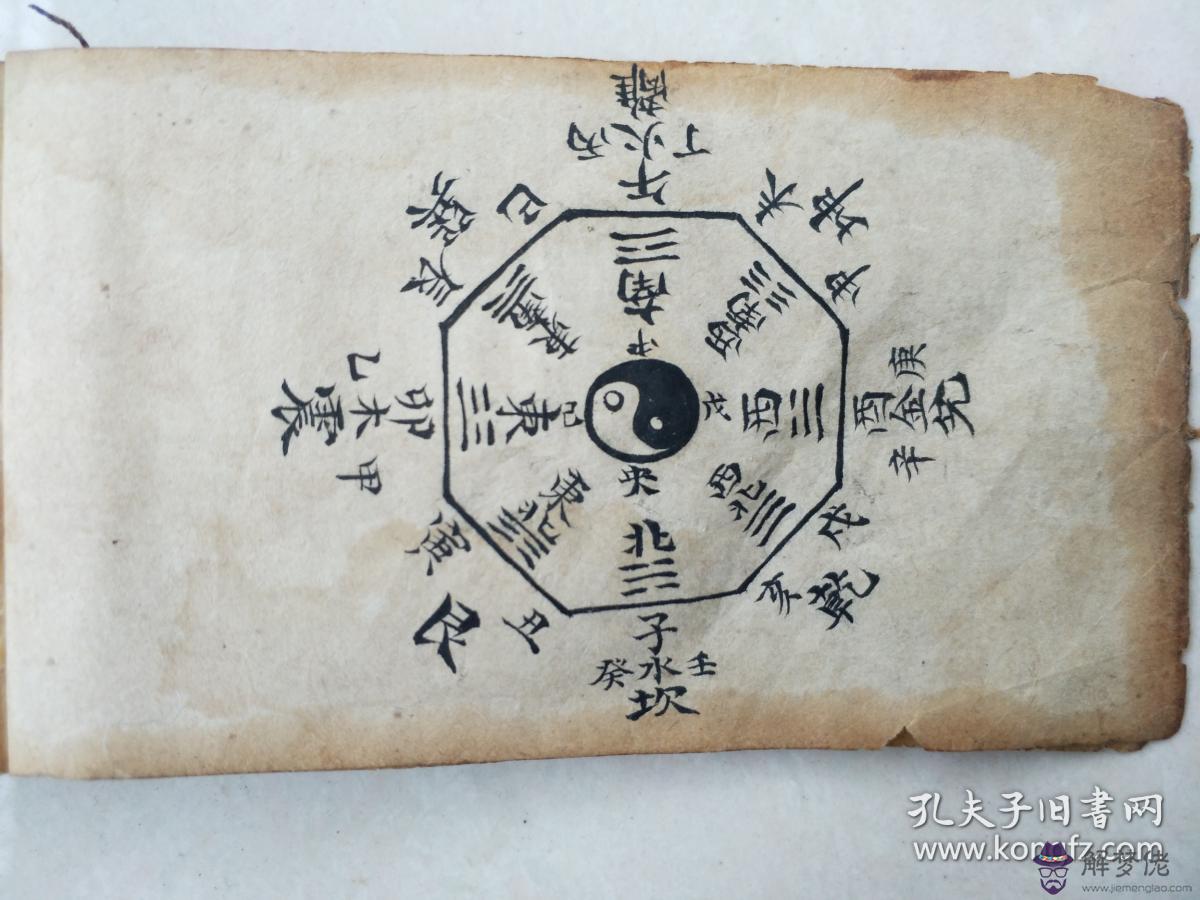 離
丁火丙
午
巳
巽
辰
未
坤
申
南
東南
西南
中
乙
震木卯
甲
東
己
戊
西
酉金兌
庚
辛
東北
央
西北
北
寅
艮
丑
戌
乾
亥
子
癸水壬
坎
孔夫子旧书网
www.kongfz.com
解梦佬
www.jiemenglao.com